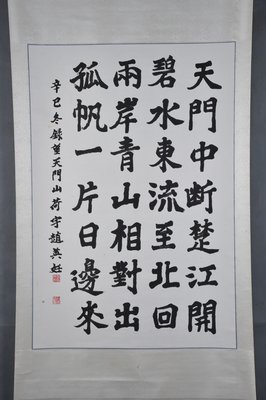 天門中断楚江開
碧水東流至北回
兩岸青山相對出
孤帆一片日邊來
辛巳冬錄望天門山荷宇趙英妊